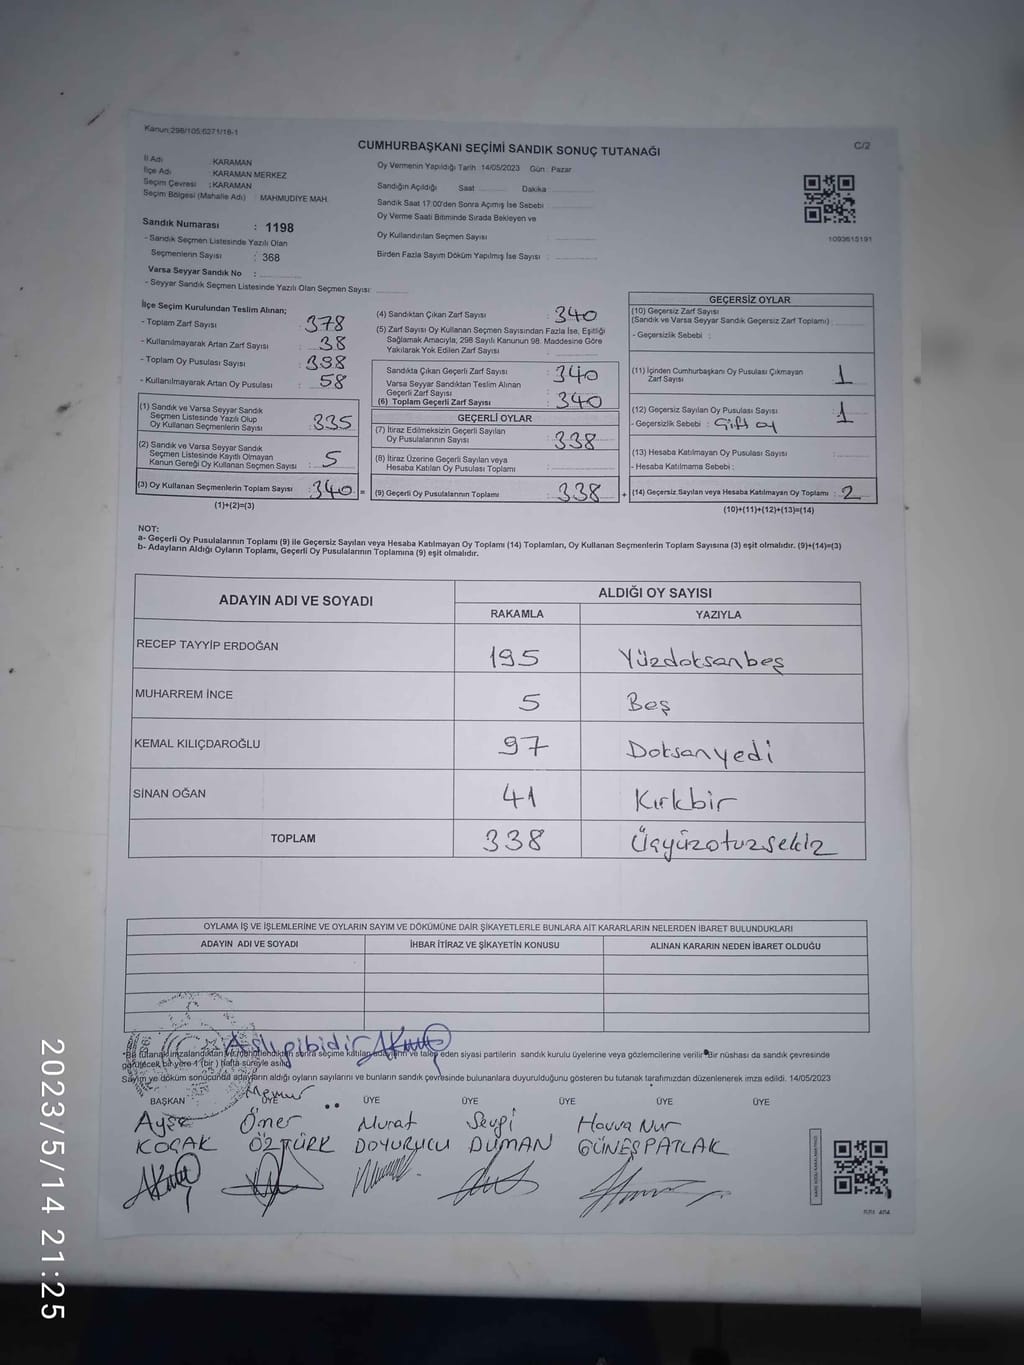 Kanun:298/105;6271/18-1
CUMHURBAŞKANI SEÇİMİ SANDIK SONUÇ TUTANAĞI
C/2
İl Adı KARAMAN
İlçe Adı KARAMAN MERKEZ
Seçim Çevresi : KARAMAN
Seçim Bölgesi (Mahalle Adı) MAHMUDİYE MAH.
Oy Vermenin Yapıldığı Tarih 14/05/2023 Gün : Pazar
Sandığın Açıldığı Saat Dakika
Sandık Saat 17:00'den Sonra Açımış İse Sebebi
Oy Verme Saati Bitiminde Sırada Bekleyen ve
Oy Kullandırılan Seçmen Sayısı :
Birden Fazla Sayım Döküm Yapılmış İse Sayısı :
1093615191
Sandık Numarası : 1198
- Sandık Seçmen Listesinde Yazılı Olan
Seçmenlerin Sayısı : 368
Varsa Seyyar Sandık No :
- Seyyar Sandık Seçmen Listesinde Yazılı Olan Seçmen Sayısı:
İlçe Seçim Kurulundan Teslim Alınan;
- Toplam Zarf Sayısı : 378
- Kullanılmayarak Artan Zarf Sayısı : 38
- Toplam Oy Pusulası Sayısı : 398
- Kullanılmayarak Artan Oy Pusulası : 58
(1) Sandık ve Varsa Seyyar Sandık
Seçmen Listesinde Yazılı Olup
Oy Kullanan Seçmenlerin Sayısı : 335
(2) Sandık ve Varsa Seyyar Sandık
Seçmen Listesinde Kayıtlı Olmayan
Kanun Gereği Oy Kullanan Seçmen Sayısı : 5
(3) Oy Kullanan Seçmenlerin Toplam Sayısı : 340 =
(1)+(2)=(3)
(4) Sandıktan Çıkan Zarf Sayısı : 340
(5) Zarf Sayısı Oy Kullanan Seçmen Sayısından Fazla İse, Eşitliği
Sağlamak Amacıyla, 298 Sayılı Kanunun 98. Maddesine Göre
Yakılarak Yok Edilen Zarf Sayısı :
Sandıkta Çıkan Geçerli Zarf Sayısı : 340
Varsa Seyyar Sandıktan Teslim Alınan
Geçerli Zarf Sayısı :
(6) Toplam Geçerli Zarf Sayısı : 340
GEÇERLİ OYLAR
(7) İtiraz Edilmeksizin Geçerli Sayılan
Oy Pusulalarının Sayısı : 338
(8) İtiraz Üzerine Geçerli Sayılan veya
Hesaba Katılan Oy Pusulası Toplamı :
(9) Geçerli Oy Pusulalarının Toplamı : 338 +
GEÇERSİZ OYLAR
(10) Geçersiz Zarf Sayısı
(Sandık ve Varsa Seyyar Sandık Geçersiz Zarf Toplamı) :
- Geçersizlik Sebebi :
(11) İçinden Cumhurbaşkanı Oy Pusulası Çıkmayan
Zarf Sayısı : 1
(12) Geçersiz Sayılan Oy Pusulası Sayısı : 1
- Geçersizlik Sebebi : Çift oy
(13) Hesaba Katılmayan Oy Pusulası Sayısı :
- Hesaba Katılmama Sebebi :
(14) Geçersiz Sayılan veya Hesaba Katılmayan Oy Toplamı : 2
(10)+(11)+(12)+(13)=(14)
NOT:
a- Geçerli Oy Pusulalarının Toplamı (9) ile Geçersiz Sayılan veya Hesaba Katılmayan Oy Toplamı (14) Toplamları, Oy Kullanan Seçmenlerin Toplam Sayısına (3) eşit olmalıdır. (9)+(14)=(3)
b- Adayların Aldığı Oyların Toplamı, Geçerli Oy Pusulalarının Toplamına (9) eşit olmalıdır.
ADAYIN ADI VE SOYADI
ALDIĞI OY SAYISI
RAKAMLA YAZIYLA
RECEP TAYYİP ERDOĞAN 195 Yüzdoksanbeş
MUHARREM İNCE 5 Beş
KEMAL KILIÇDAROĞLU 97 Doksanyedi
SİNAN OĞAN 41 Kırkbir
TOPLAM 338 Üçyüzotuzsekiz
OYLAMA İŞ VE İŞLEMLERİNE VE OYLARIN SAYIM VE DÖKÜMÜNE DAİR ŞİKAYETLERLE BUNLARA AİT KARARLARIN NELERDEN İBARET BULUNDUKLARI
ADAYIN ADI VE SOYADI İHBAR İTİRAZ VE ŞİKAYETİN KONUSU ALINAN KARARIN NEDEN İBARET OLDUĞU
Aslı gibidir
*Bu tutanak imzalandıktan ve mühürlendikten sonra seçime katılan adayların ve talep eden siyasi partilerin sandık kurulu üyelerine veya gözlemcilerine verilir. Bir nüshası da sandık çevresinde
görülecek bir yere 1 (bir) hafta süreyle asılır.
Sayım ve döküm sonucunda adayların aldığı oyların sayılarını ve bunların sandık çevresinde bulunanlara duyurulduğunu gösteren bu tutanak tarafımızdan düzenlenerek imza edildi. 14/05/2023
Memur
BAŞKAN ÜYE ÜYE ÜYE ÜYE ÜYE ÜYE
Ayşe Ömer Murat Sevgi Havva Nur
KOÇAK ÖZTÜRK DOYURUCU DUMAN GÜNEŞPATLAK
2023/5/14 21:25